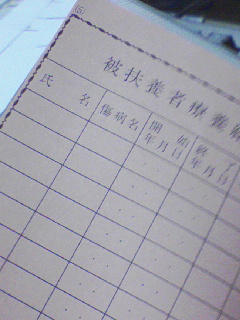 (5)
被扶養者療養
氏名 傷病名 開始年月日 終了年月日